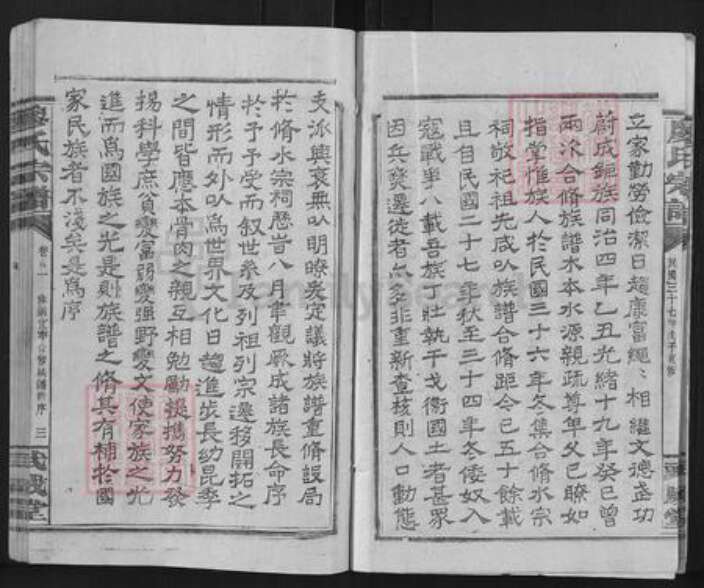 立家勤勞儉潔日趨康富繩〻相繼文德武功
蔚成鉅族同治四年乙丑光緒十九年癸巳曾
兩次合脩族譜水本水源親疏尊卑久已瞭如
指掌惟族人於民國三十六年冬集合脩水宗
祠敬祀祖先咸以族譜合脩距今已五十餘載
且自民國二十七年秋至三十四年冬倭奴入
寇戰爭八載吾族丁壯執干戈衛國土者甚眾
因兵燹遷徙者亦多非重新查核則人口動態
支派興衰無以明瞭爰定議將族譜重脩設局
於脩水宗祠歷旹八月幸觀厥成諸族長命序
於予予受而叙世系及列祖列宗遷移開拓之
情形而外以為世界文化日趨進步長幼昆季
之間皆應本骨肉之親互相勉勵提攜努力發
揚科學庶貧變富弱變強野變文使家族之光
進而為國族之光是則族譜之脩其有補於國
家民族者不淺矣是為序
廖氏宗譜
卷首一
三
武威堂
廖氏宗譜
民國三十七年戊子